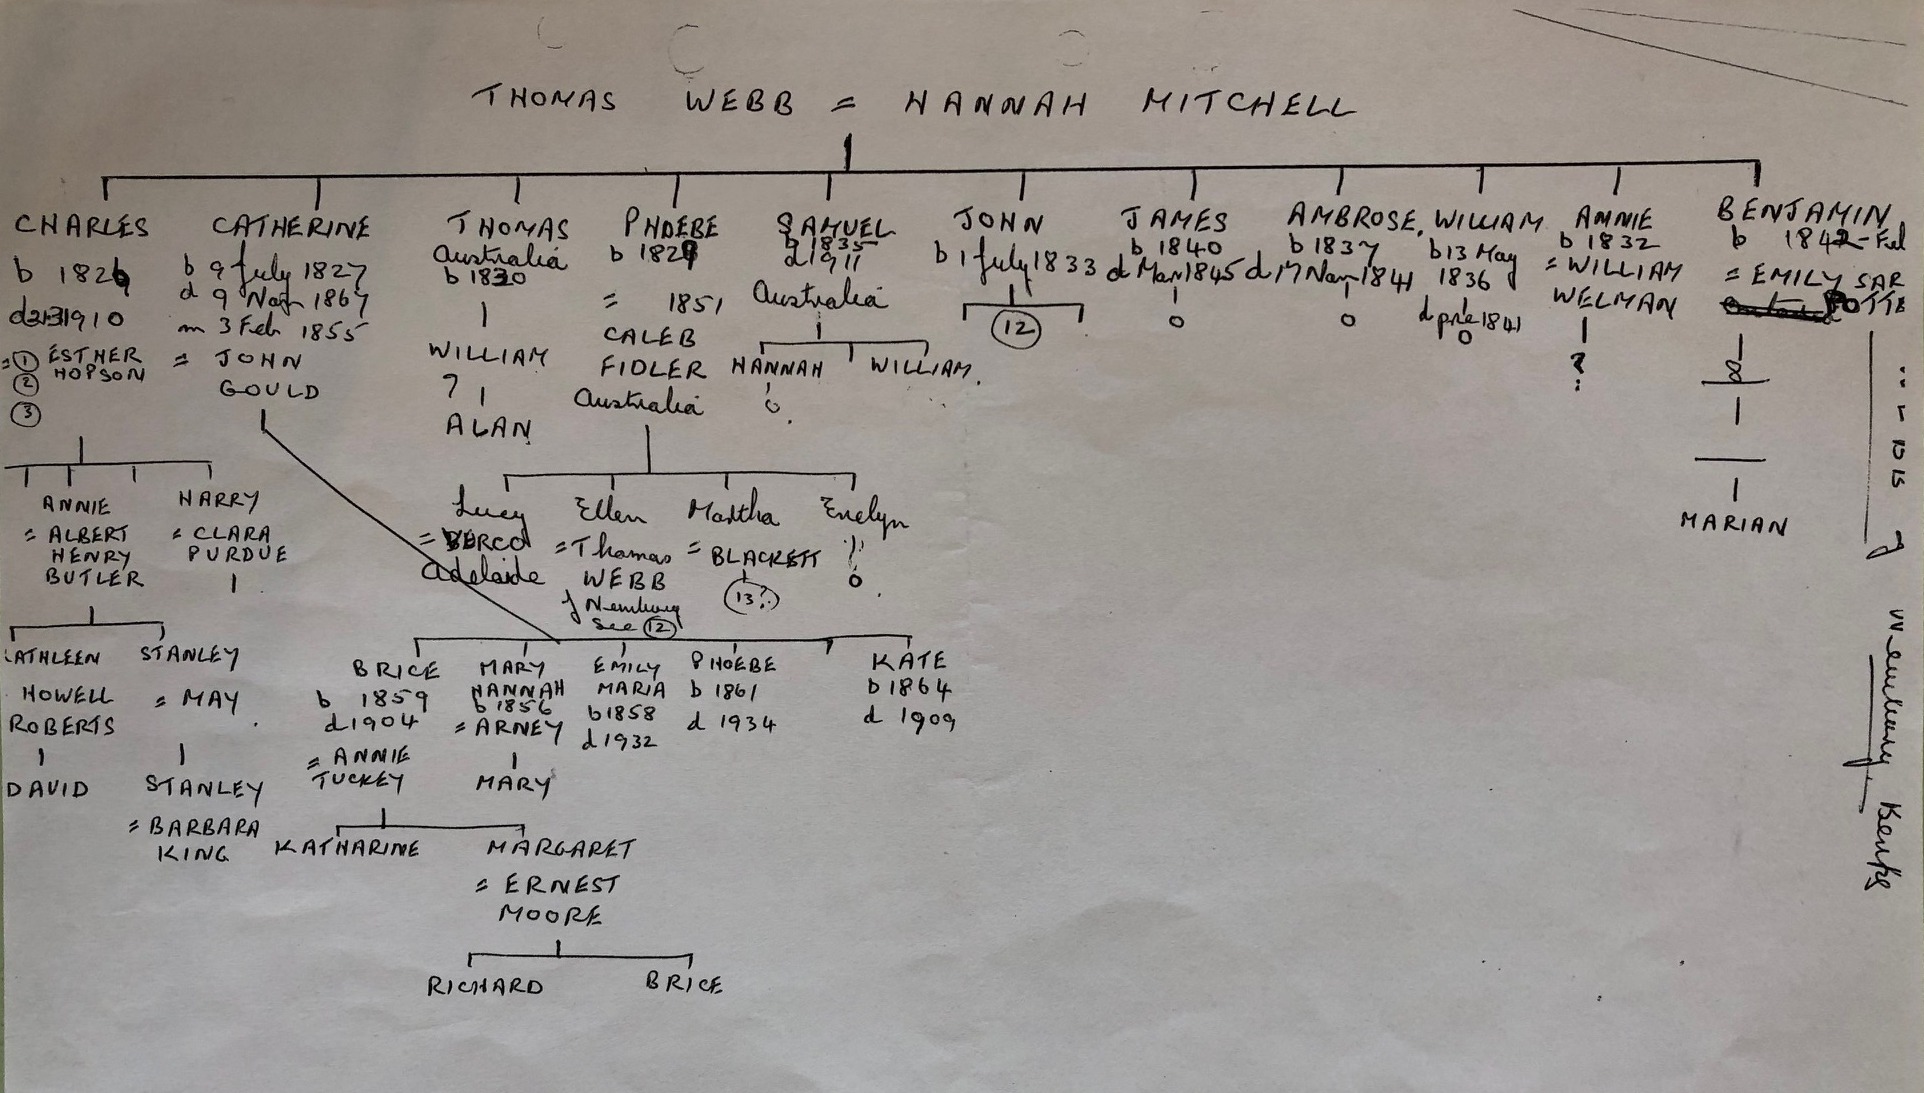 THOMAS WEBB = HANNAH MITCHELL
CHARLES
b 1826
d 1910
= ① ESTHER
HOPSON
②
③
CATHERINE
b 9 July 1827
d 9 Nov 1867
m 3 Feb 1855
= JOHN
GOULD
THOMAS
Australia
b 1830
WILLIAM
?
ALAN
PHOEBE
b 1829
= 1851
CALEB
FIDLER
Australia
SAMUEL
b 1835
d 1911
Australia
HANNAH
WILLIAM
JOHN
b 1 July 1833
⑫
JAMES
b 1840
d Mar 1845
o
AMBROSE,
b 1837
d 17 Nov 1841
o
WILLIAM
b 13 May
1836
d pre 1841
o
ANNIE
b 1832
= WILLIAM
WELMAN
?
BENJAMIN
b 1842 - Feb
= EMILY SAR
POTTE
MARIAN
ANNIE
= ALBERT
HENRY
BUTLER
HARRY
= CLARA
PURDUE
Lucy
= VERCO
Adelaide
Ellen
= Thomas
WEBB
of Newbury
See ⑫
Martha
= BLACKETT
(13?)
Evelyn
o
ATHLEEN
HOWELL
ROBERTS
DAVID
STANLEY
= MAY
STANLEY
= BARBARA
KING
BRICE
b 1859
d 1904
= ANNIE
TUCKEY
MARY
HANNAH
b 1856
= ARNEY
MARY
EMILY
MARIA
b 1858
d 1932
PHOEBE
b 1861
d 1934
KATE
b 1864
d 1909
KATHARINE
MARGARET
= ERNEST
MOORE
RICHARD
BRICE
Berks